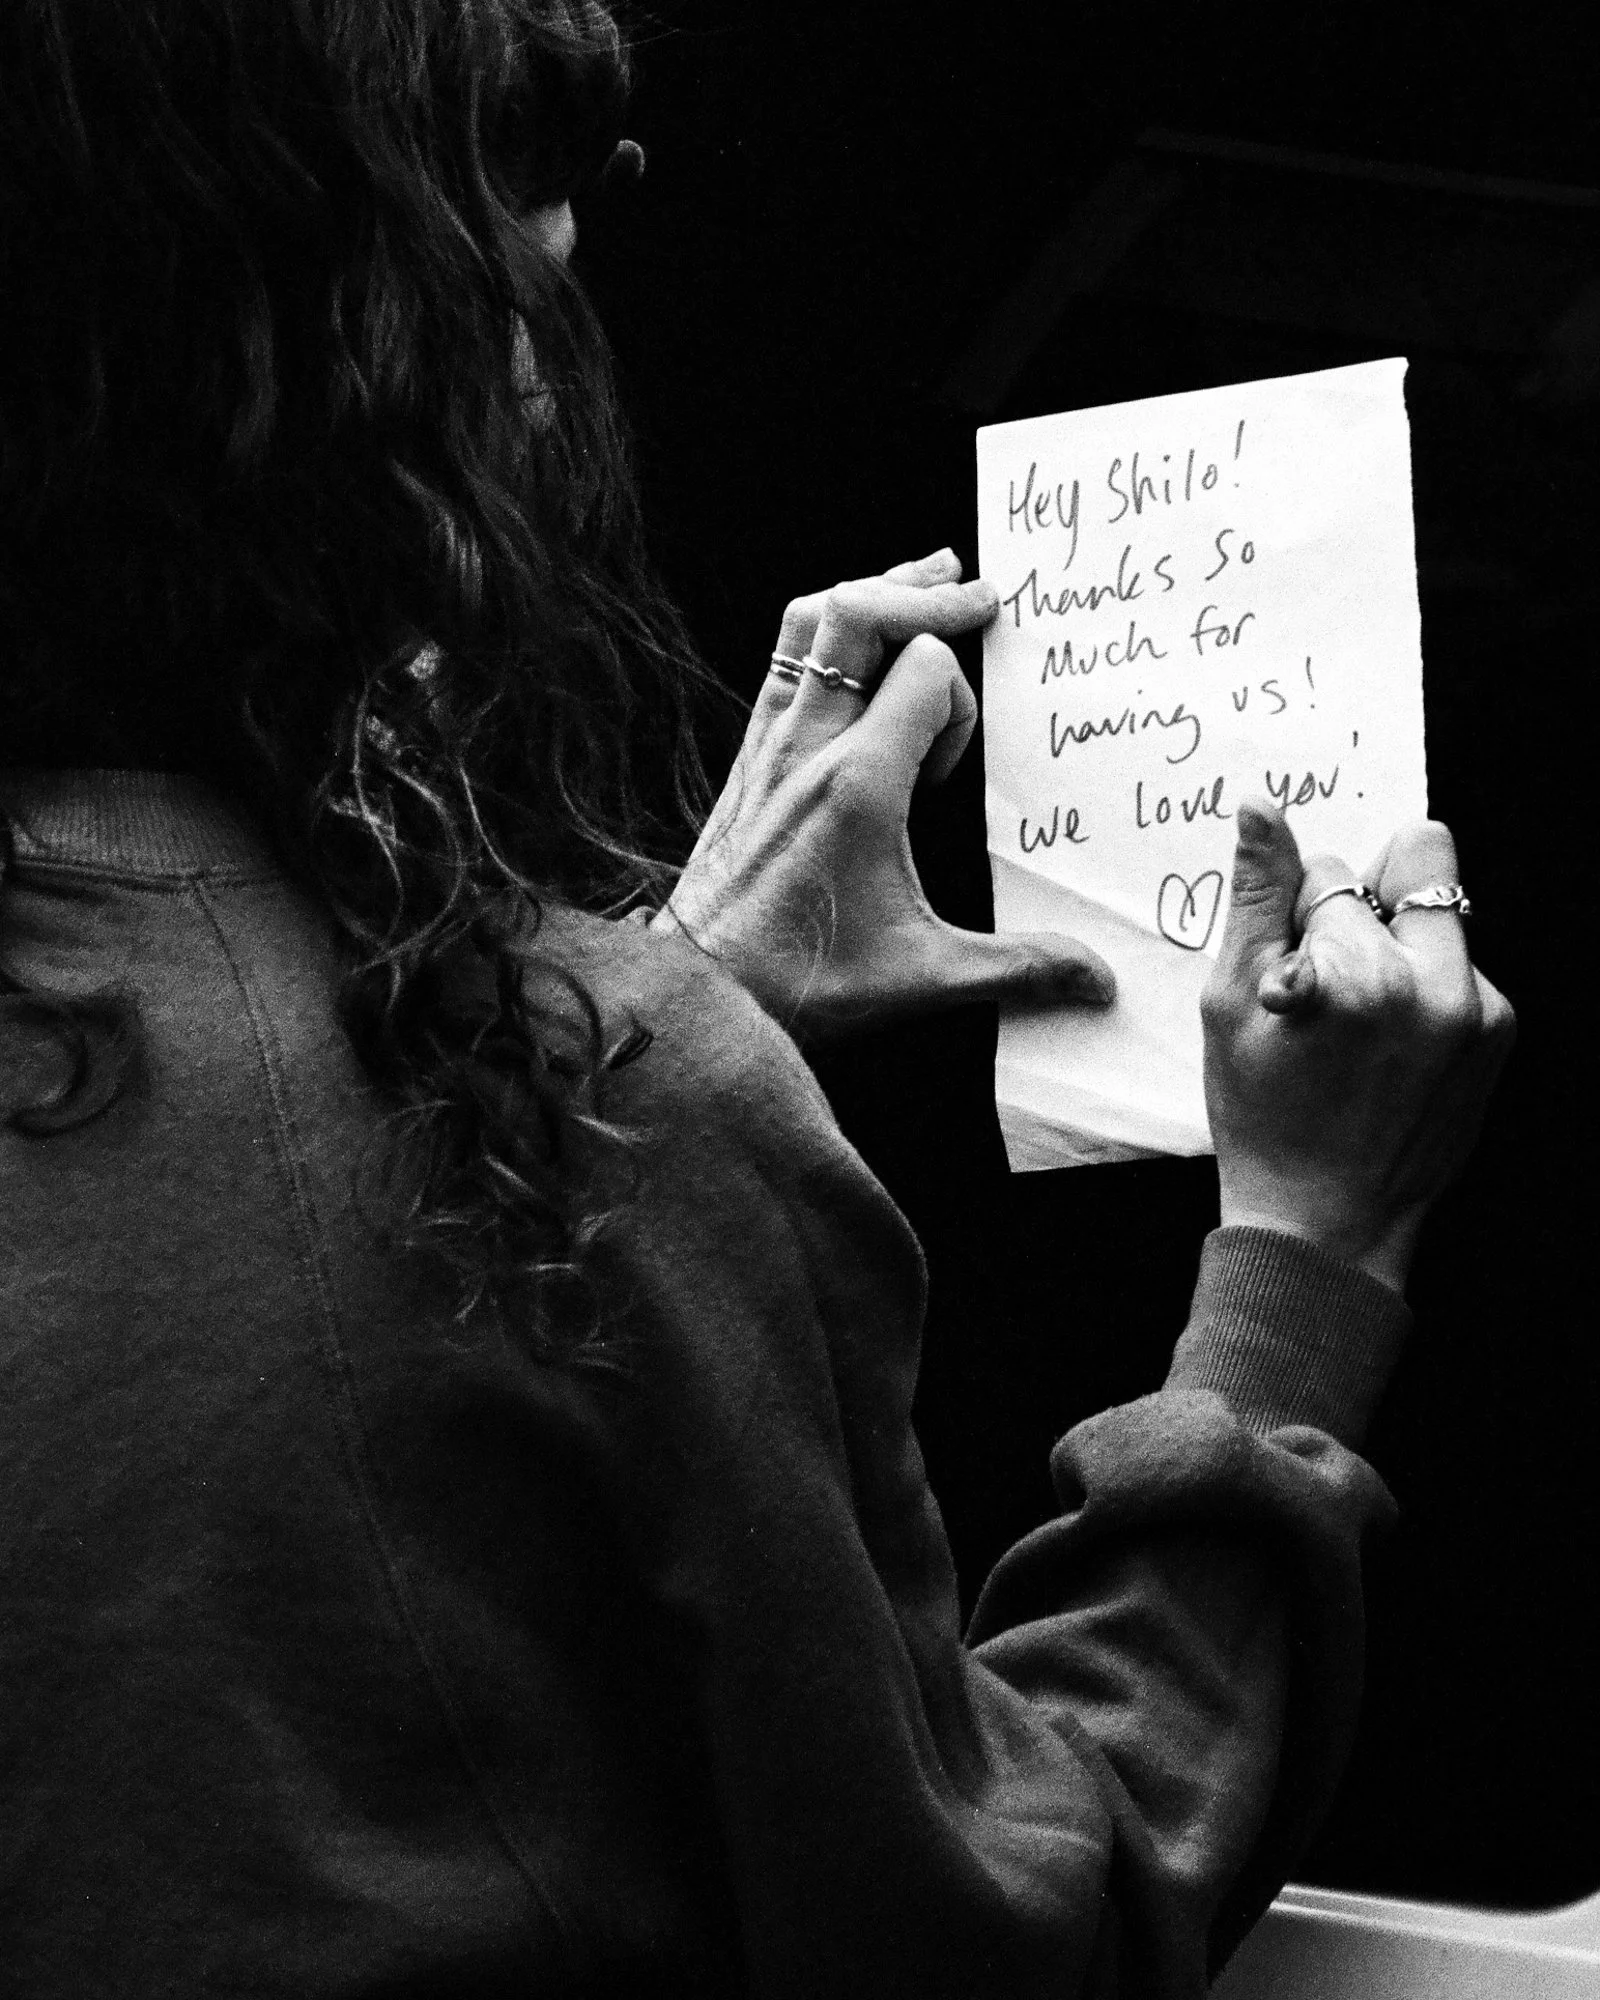 Hey Shilo!
Thanks so
Much for
having us!
we love you!